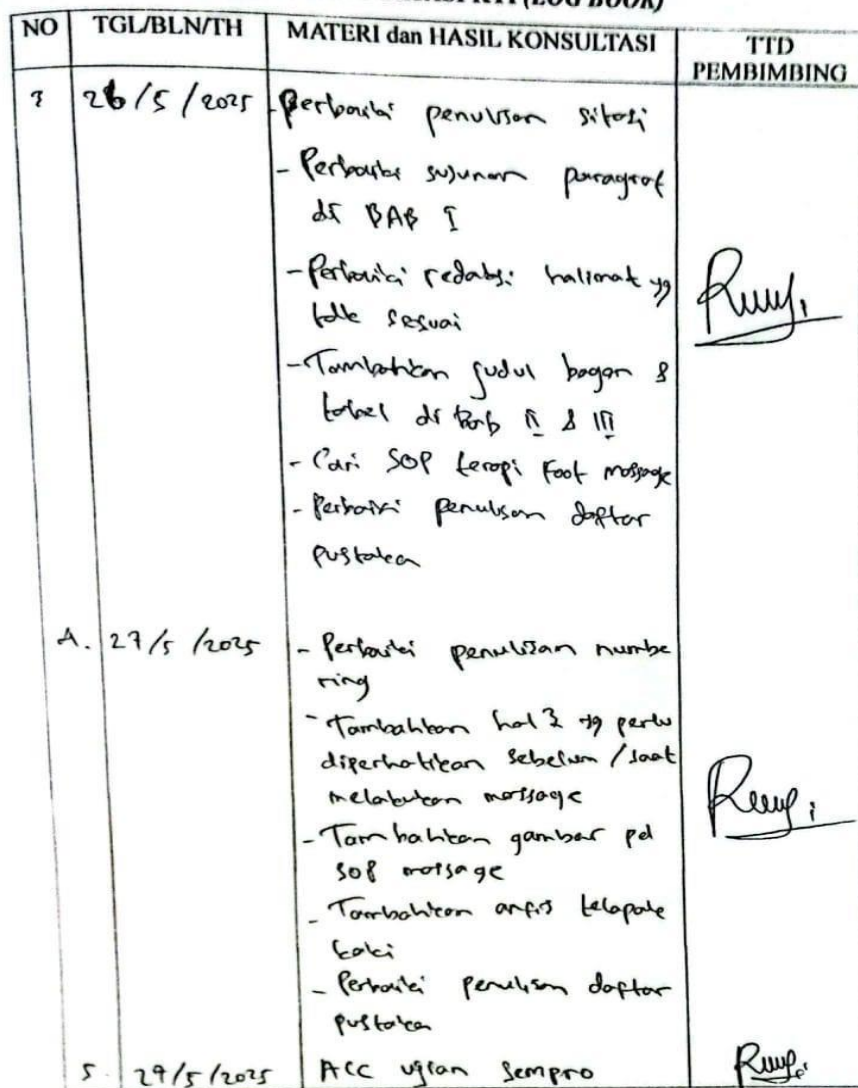 KTI (LOG BOOK)
NO TGL/BLN/TH MATERI dan HASIL KONSULTASI TTD PEMBIMBING
3 26/5/2025 - Perbaiki penulisan sitasi
- Perbaiki susunan paragraf
di BAB I
- Perbaiki redaksi kalimat yg
tdk sesuai
- Tambahkan judul bagan &
tabel di Bab II & III
- Cari SOP terapi Foot massage
- Perbaiki penulisan daftar
pustaka
4. 27/5/2025 - Perbaiki penulisan numbe
ring
- Tambahkan hal2 yg perlu
diperhatikan sebelum/saat
melakukan massage
- Tambahkan gambar pd
SOP massage
- Tambahkan anfis telapak
kaki
- Perbaiki penulisan daftar
pustaka
5. 29/5/2025 ACC ujian Sempro